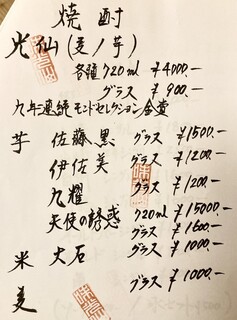 焼酎
光仙(麦/芋)
各種720ml ¥4000.-
グラス ¥900.-
九年連続モンドセレクション金賞
芋 佐藤黒 グラス ¥1500.-
伊佐美 グラス ¥1200.-
九耀 グラス ¥1200.-
天使の誘惑 720ml ¥15000.-
グラス ¥1600.-
米 大石 グラス ¥1000.-
麦 グラス ¥1000.-